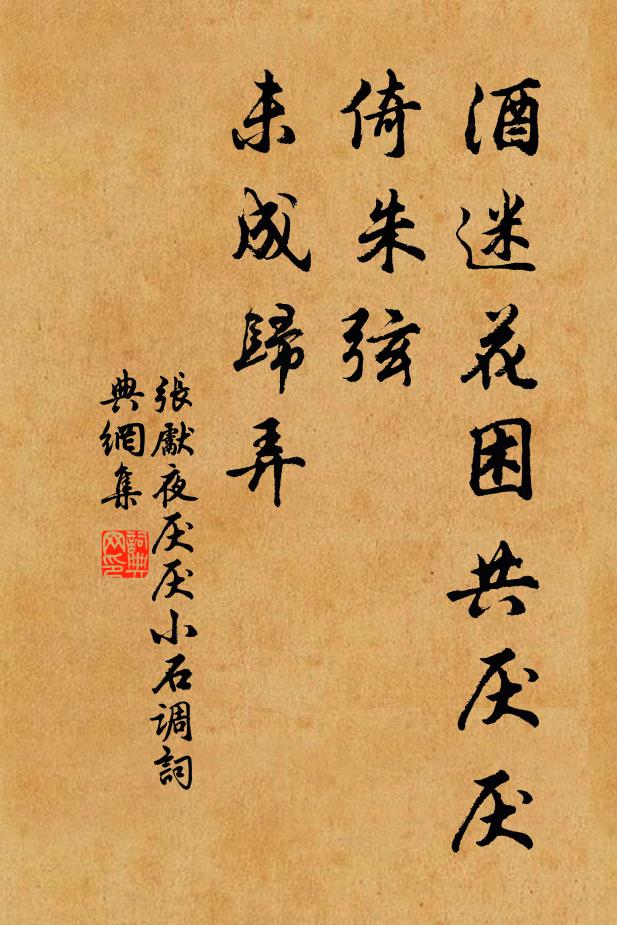 酒迷花困共厌厌
倚朱弦
未成歸弄
張獻夜厌厌小石调詞
典網集
詞典网印